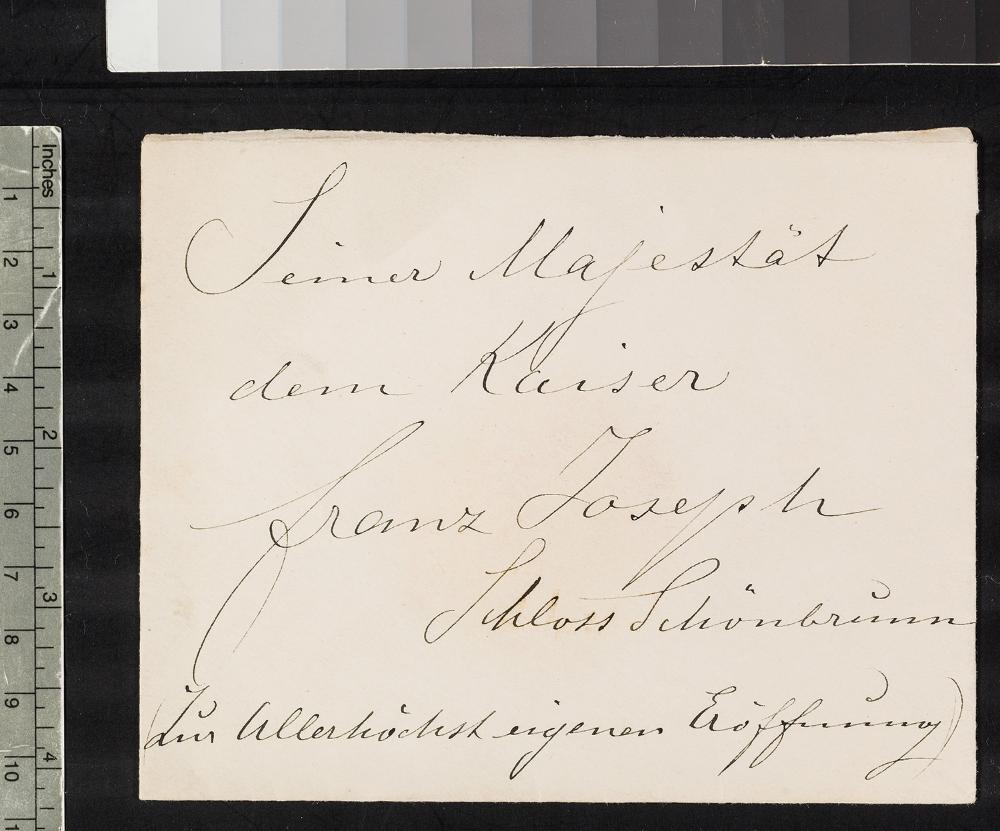 Inches
1 2 3 4 5 6 7 8 9 10
1 2 3 4
Seiner Majestät
dem Kaiser
Franz Joseph
Schloss Schönbrunn
(Zur Allerhöchst eigenen Eröffnung)